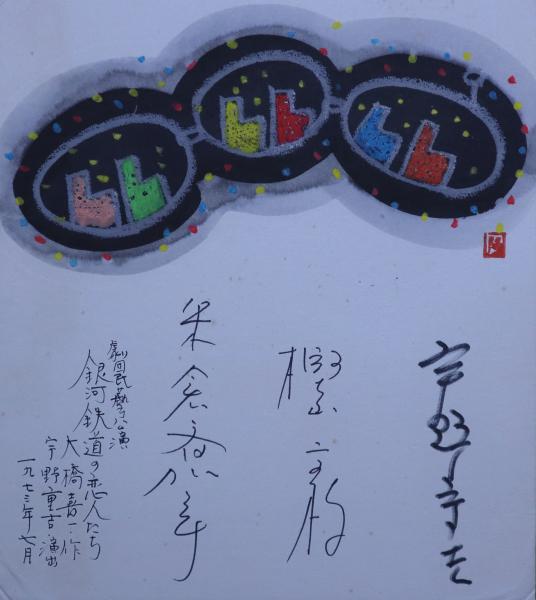 宇野重吉
樫山文枝
米倉斉加年
劇団民藝公演
銀河鉄道の恋人たち
大橋喜一・作
宇野重吉・演出
一九七三年七月